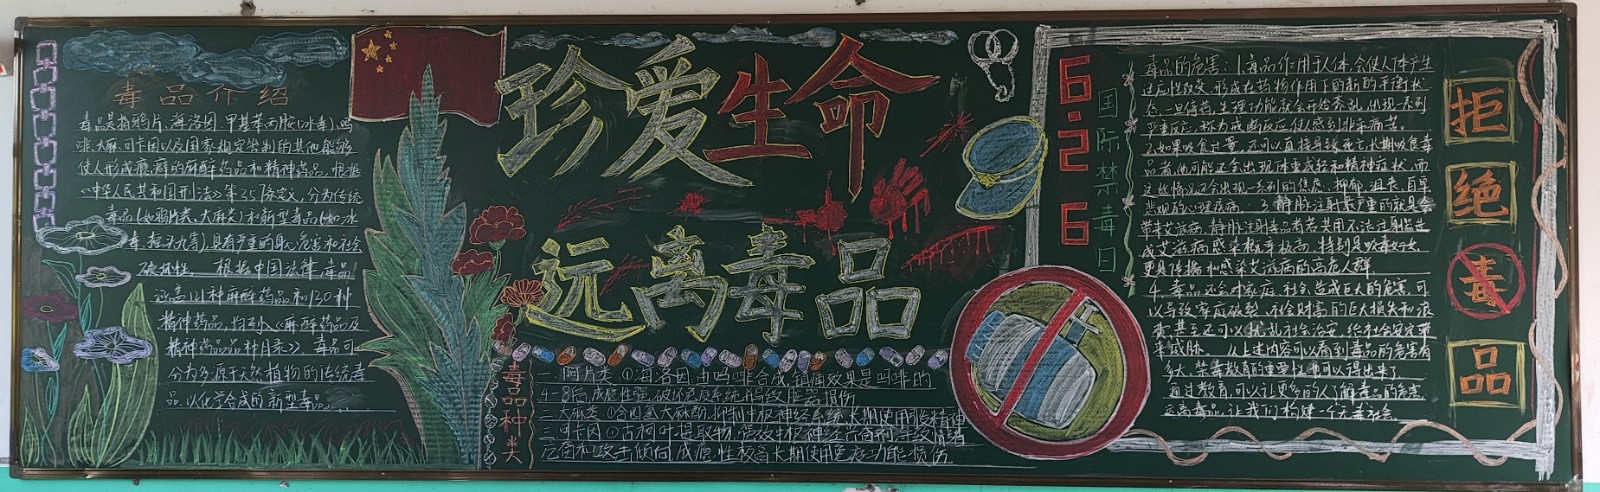 毒品介绍
毒品是指鸦片、海洛因、甲基苯丙胺(冰毒)、吗
啡、大麻、可卡因以及国家规定管制的其他能够
使人形成瘾癖的麻醉药品和精神药品。根据
《中华人民共和国刑法》第357条定义，分为传统
毒品(如鸦片类、大麻类)和新型毒品(如冰
毒、摇头丸等)，具有严重的身心危害和社会
破坏性。根据中国法律，毒品
涵盖121种麻醉药品和130种
精神药品，均列入《麻醉药品及
精神药品品种目录》。毒品可
分为多源于天然植物的传统毒
品、以化学合成的新型毒品
珍爱生命
远离毒品
毒品种类
一、阿片类 ①海洛因：由吗啡合成，镇痛效果是吗啡的
4-8倍，成瘾性强，破坏免疫系统，导致脏器损伤
二、大麻类 ①含四氢大麻酚，抑制中枢神经系统，长期使用
三、可卡因 ①古柯叶提取物，强效中枢神经兴奋剂，导致情绪
和攻击倾向，成瘾性极高，长期使用 功能损伤。
6.26
国际禁毒日
毒品的危害：1.毒品作用于人体，会使人体产生
适应性改变，形成在药物作用下的新的平衡状
态。一旦停药，生理功能就会开始紊乱，出现一系列
严重反应，称为戒断反应，使人感到非常痛苦。
2.如果吸食过量，还可以直接导致死亡，长期吸食毒
品者，他可能还会出现体重减轻和精神症状，而
这些情况还会出现一系列的焦虑、抑郁、沮丧、自卑、
悲观的心理疾病。3.静脉注射最严重的就是会
带来艾滋病，静脉注射毒品者若共用不洁注射器造
成艾滋病感染概率极高，特别是吸毒妇女，
更是传播和感染艾滋病的高危人群。
4.毒品还会对家庭、社会造成巨大的危害，可
以导致家庭破裂，社会财富的巨大损失和浪
费，甚至还可以扰乱社会治安，给社会安定带
来威胁。 从上述内容可以看到毒品的危害有
多大，禁毒教育的重要性也可以得出来了。
通过教育，可以让更多的人了解毒品的危害，
远离毒品，让我们构建一个无毒社会。
拒
绝
毒
品